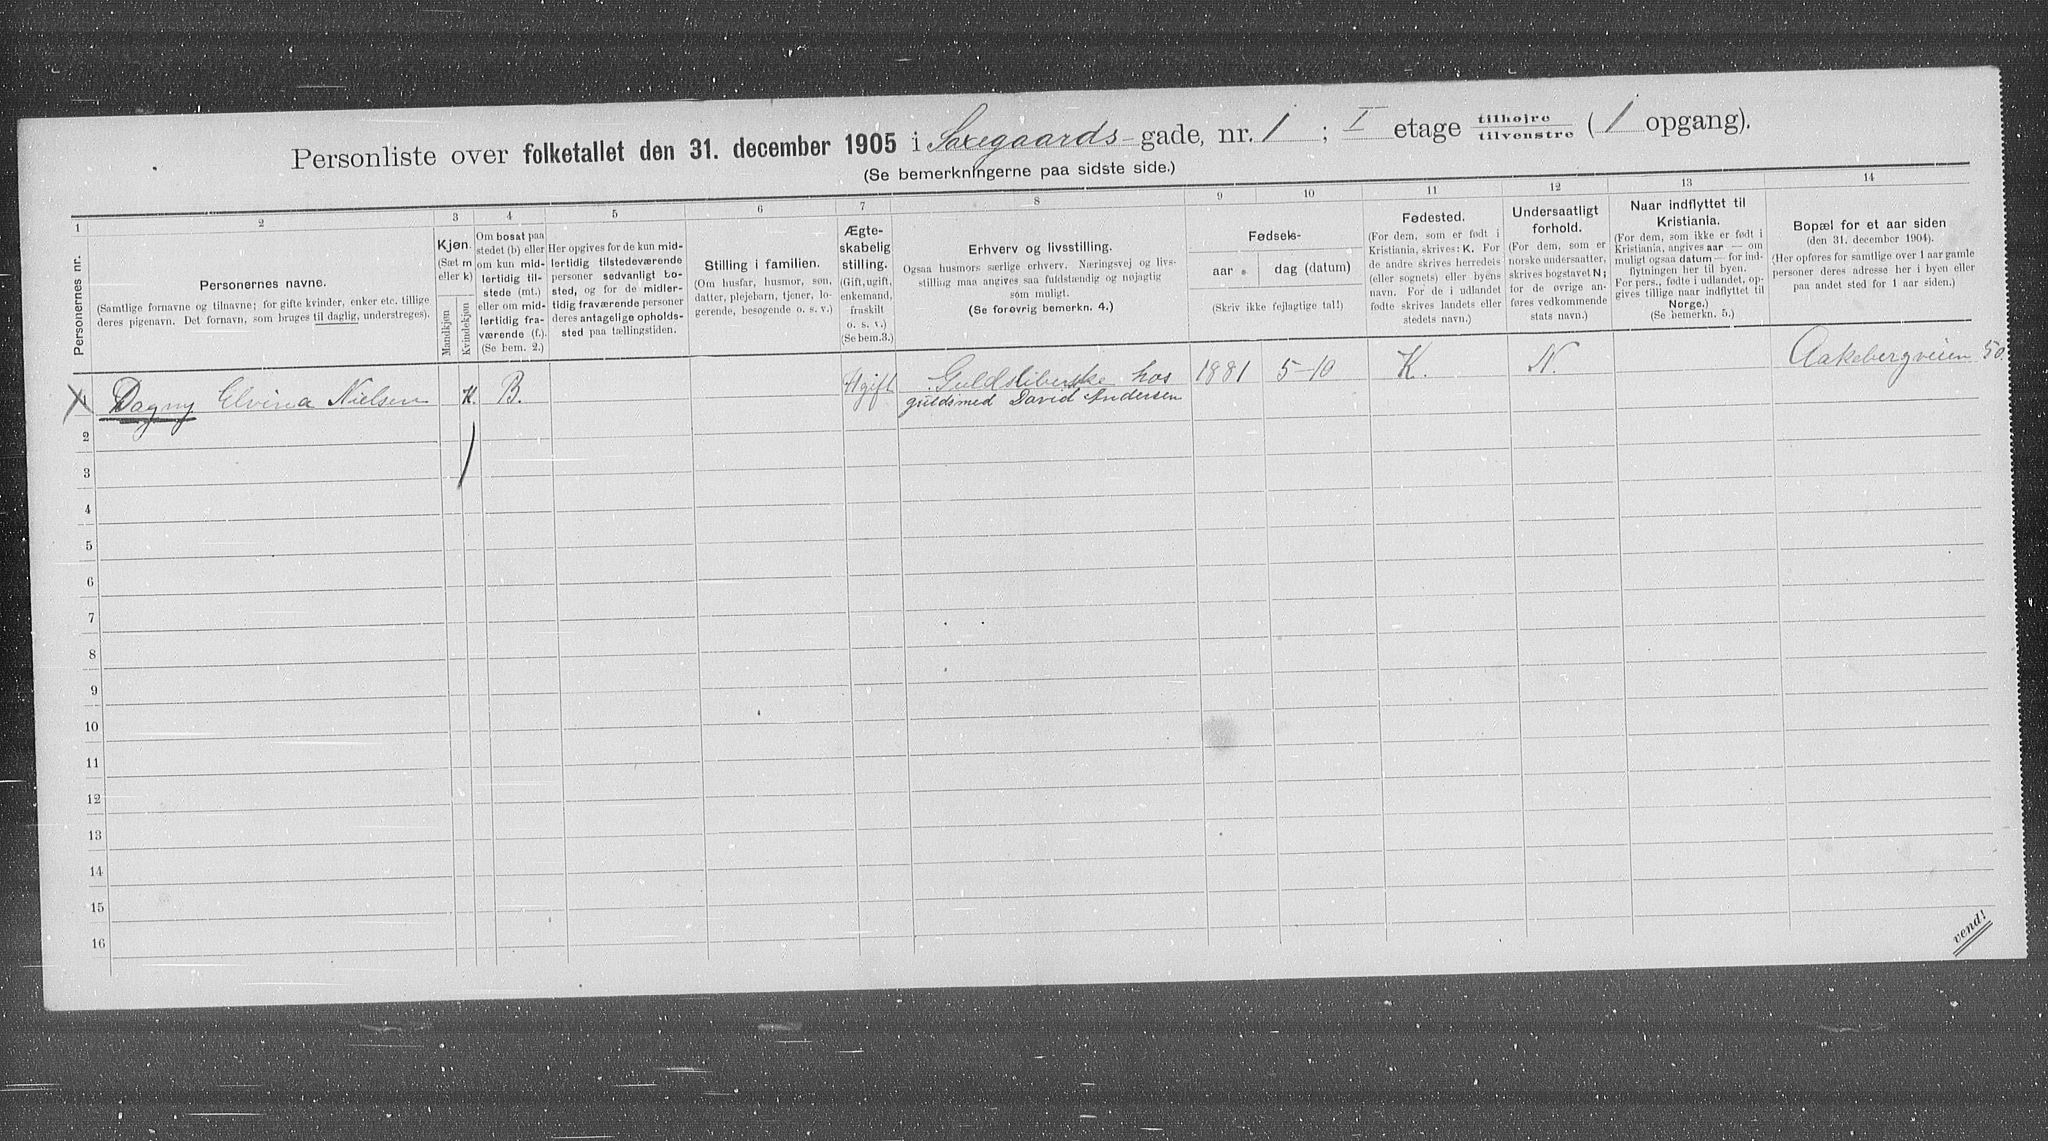 Personliste over folketallet den 31. december 1905 i Saxegaards-gade, nr. 1; I etage tilhøjre / tilvenstre (1 opgang).
(Se bemerkningerne paa sidste side.)
1 2 3 4 5 6 7 8 9 10 11 12 13 14
Personernes nr.
Personernes navne.
(Samtlige fornavne og tilnavne; for gifte kvinder, enker etc. tillige
deres pigenavn. Det fornavn, som bruges til daglig, understreges).
Kjøn.
(Sæt m
eller k)
Mandkjøn
Kvindekjøn
Om bosat paa
stedet (b) eller
om kun mid-
lertidig til-
stede (mt.)
eller om mid-
lertidig fra-
værende (f.).
(Se bem. 2.)
Her opgives for de kun mid-
lertidig tilstedeværende
personer sedvanligt bo-
sted, og for de midler-
tidig fraværende personer
deres antagelige opholds-
sted paa tællingstiden.
Stilling i familien.
(Om husfar, husmor, søn,
datter, plejebarn, tjener, lo-
gerende, besøgende o. s. v.)
Ægte-
skabelig
stilling.
(Gift, ugift,
enkemand,
fraskilt
o. s. v.)
(Se bem.3.)
Erhverv og livsstilling.
Ogsaa husmors særlige erhverv. Næringsvej og livs-
stilling maa angives saa fuldstændig og nøjagtig
som muligt.
(Se forøvrig bemerkn. 4.)
Fødsels-
aar
dag (datum)
(Skriv ikke fejlagtige tal!)
Fødested.
(For dem, som er født i
Kristiania, skrives: K. For
de andre skrives herredets
(eller sognets) eller byens
navn. For de i udlandet
fødte skrives landets eller
stedets navn.)
Undersaatligt
forhold.
(For dem, som er
norske undersaatter,
skrives bogstavet N;
for de øvrige an-
føres vedkommende
stats navn.)
Naar indflyttet til
Kristiania.
(For dem, som ikke er født i
Kristiania, angives aar — om
muligt ogsaa datum — for ind-
flytningen her til byen.
For pers., fødte i udlandet, op-
gives tillige naar indflyttet til
Norge.)
(Se bemerkn. 5.)
Bopæl for et aar siden
(den 31. december 1904).
(Her opføres for samtlige over 1 aar gamle
personer deres adresse her i byen eller
paa andet sted for 1 aar siden.)
1 Dagny Elvina Nielsen K. B. Ugift Guldsliberske hos 1881 5-10 K. N. Aakebergveien 50
guldsmed David Andersen
2
3
4
5
6
7
8
9
10
11
12
13
14
15
16
vend!